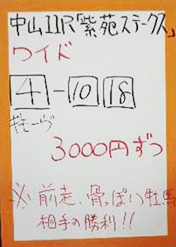 中山11R「紫苑ステークス」
ワイド
4-10 18
3000円ずつ
※前走、骨っぽい牡馬
相手の勝利!!